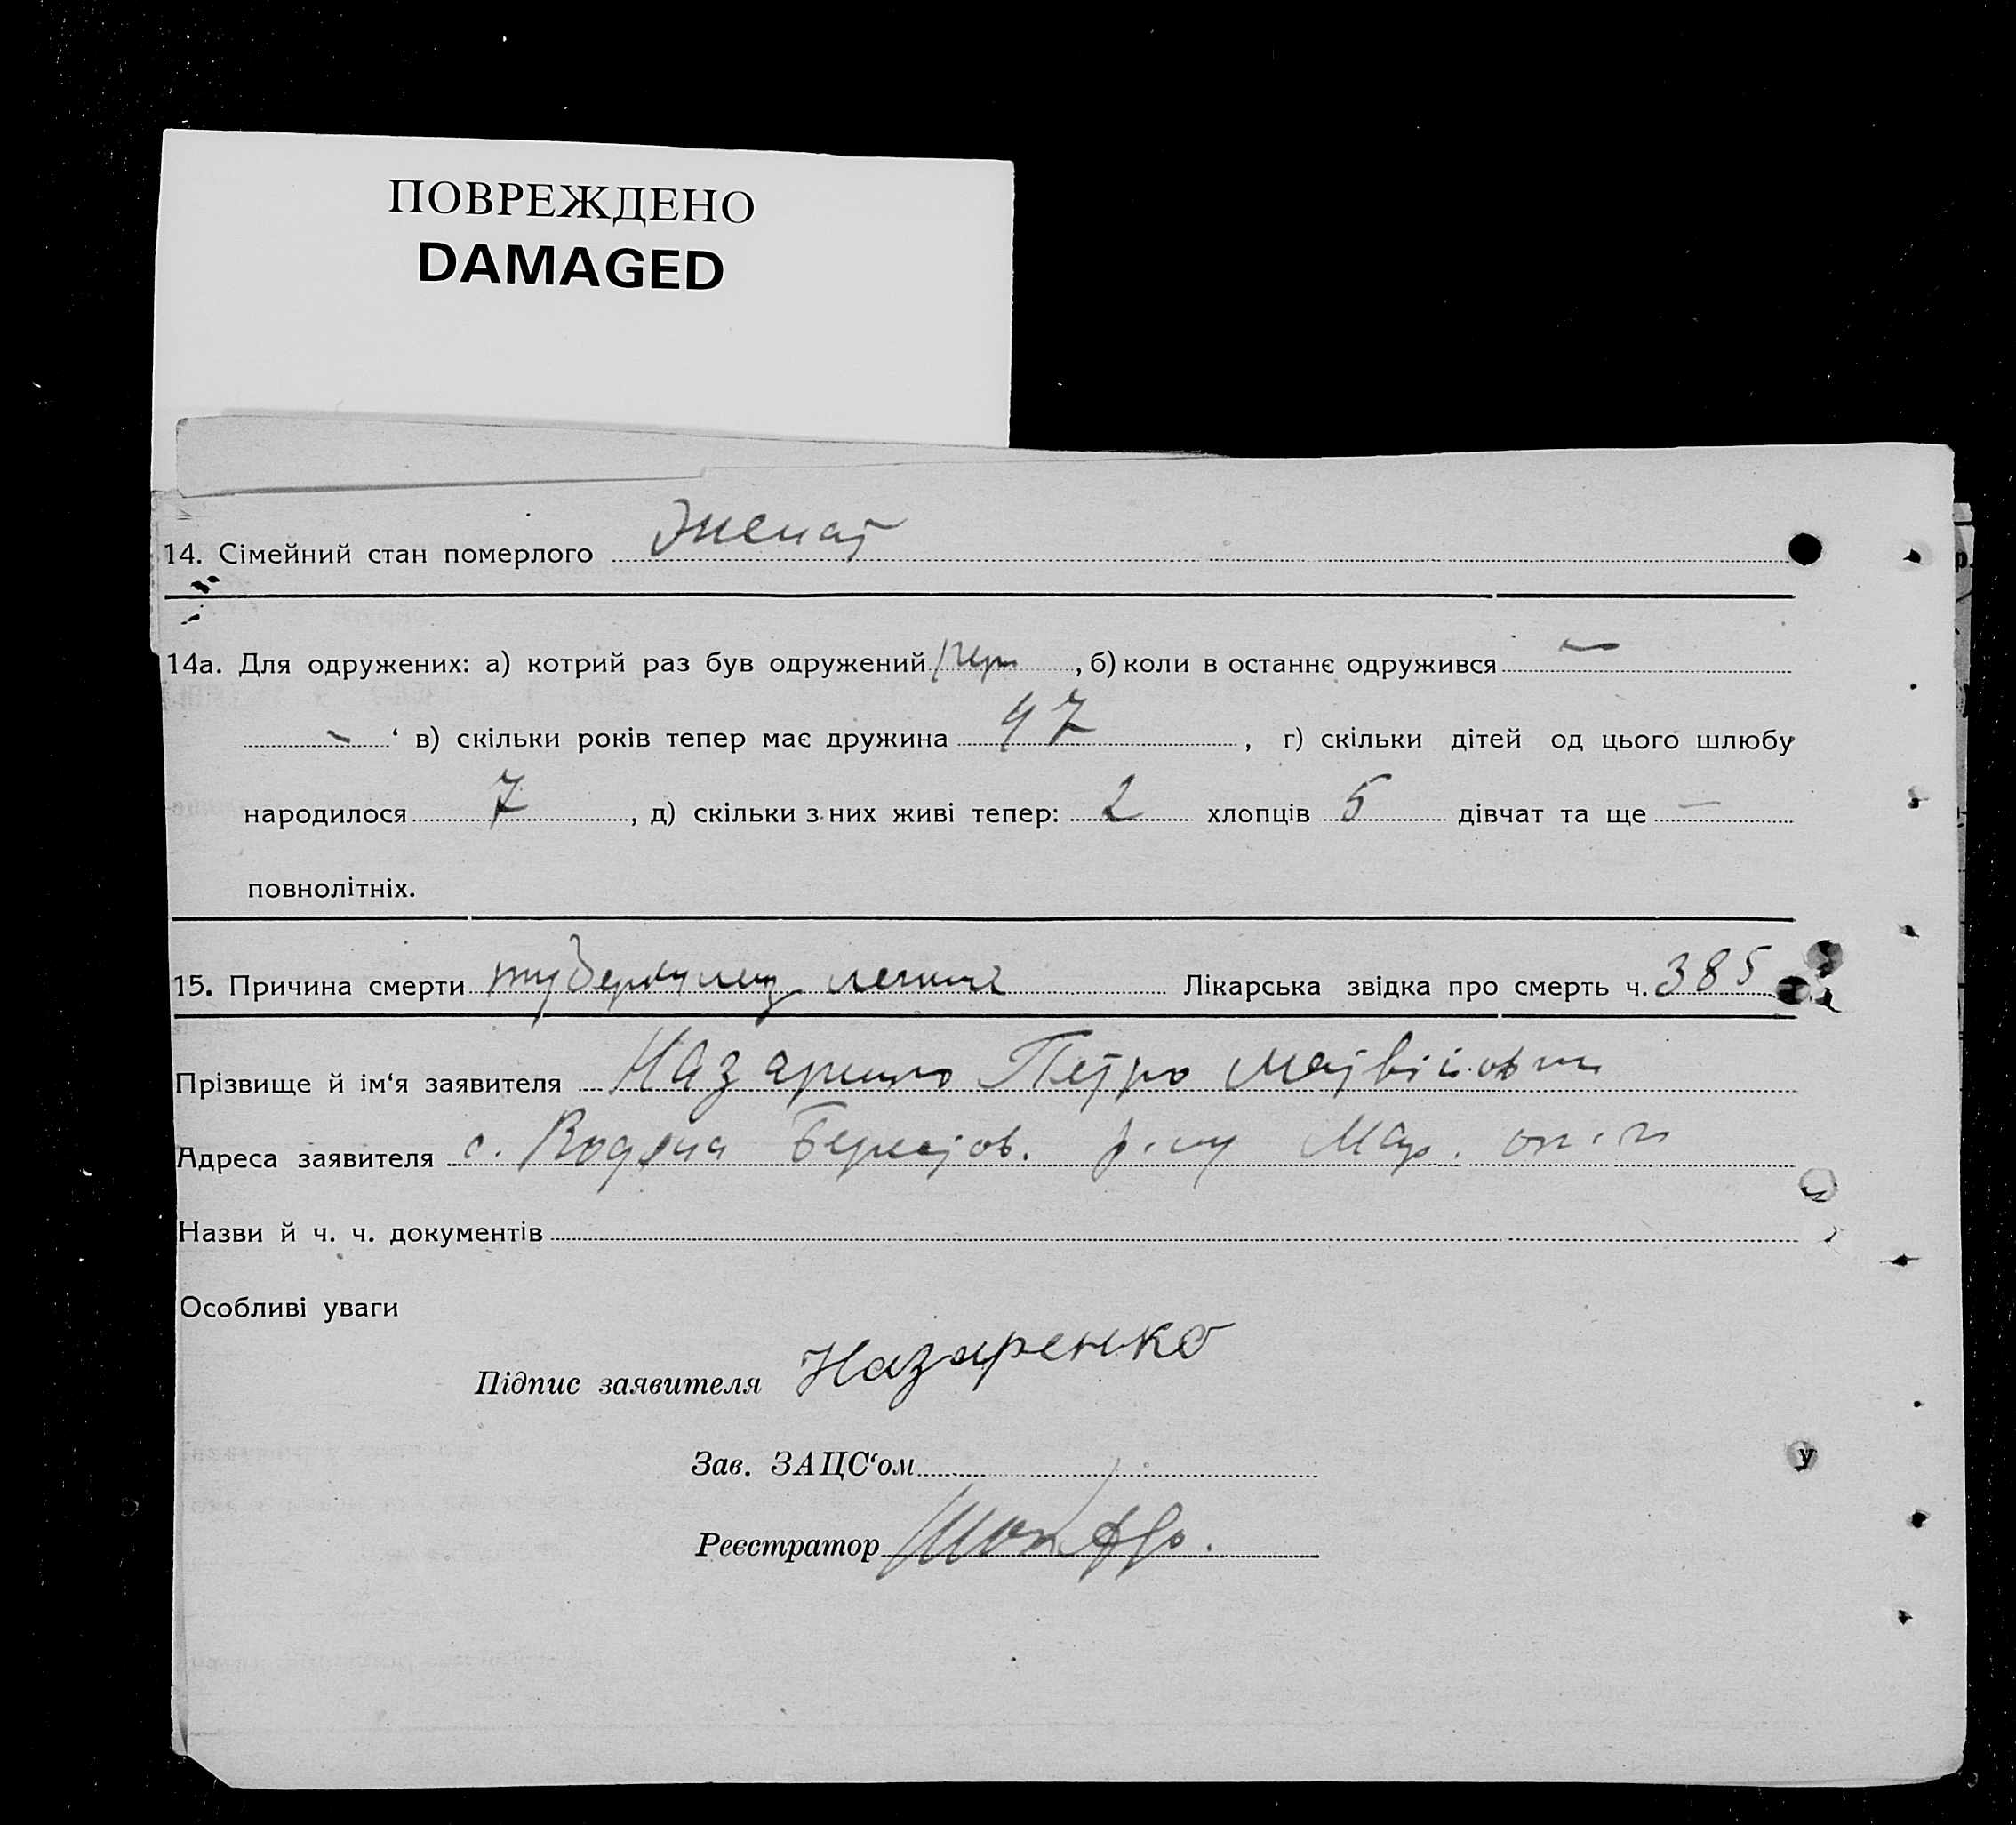 ПОВРЕЖДЕНО
DAMAGED
14. Сімейний стан померлого Женат
14а. Для одружених: а) котрий раз був одружений перш , б) коли в останнє одружився —
- ‘ в) скільки років тепер має дружина 47 , г) скільки дітей од цього шлюбу
народилося 7 , д) скільки з них живі тепер: 2 хлопців 5 дівчат та ще —
повнолітніх.
15. Причина смерти туберкулез легких Лікарська звідка про смерть ч. 385
Прізвище й ім‘я заявителя Назаренко Петро Матвійович
Адреса заявителя с. Водяна р-ну Мар.
Назви й ч. ч. документів
Особливі уваги
Підпис заявителя Назаренко
Зав. ЗАЦС‘ом
Реєстратор
у